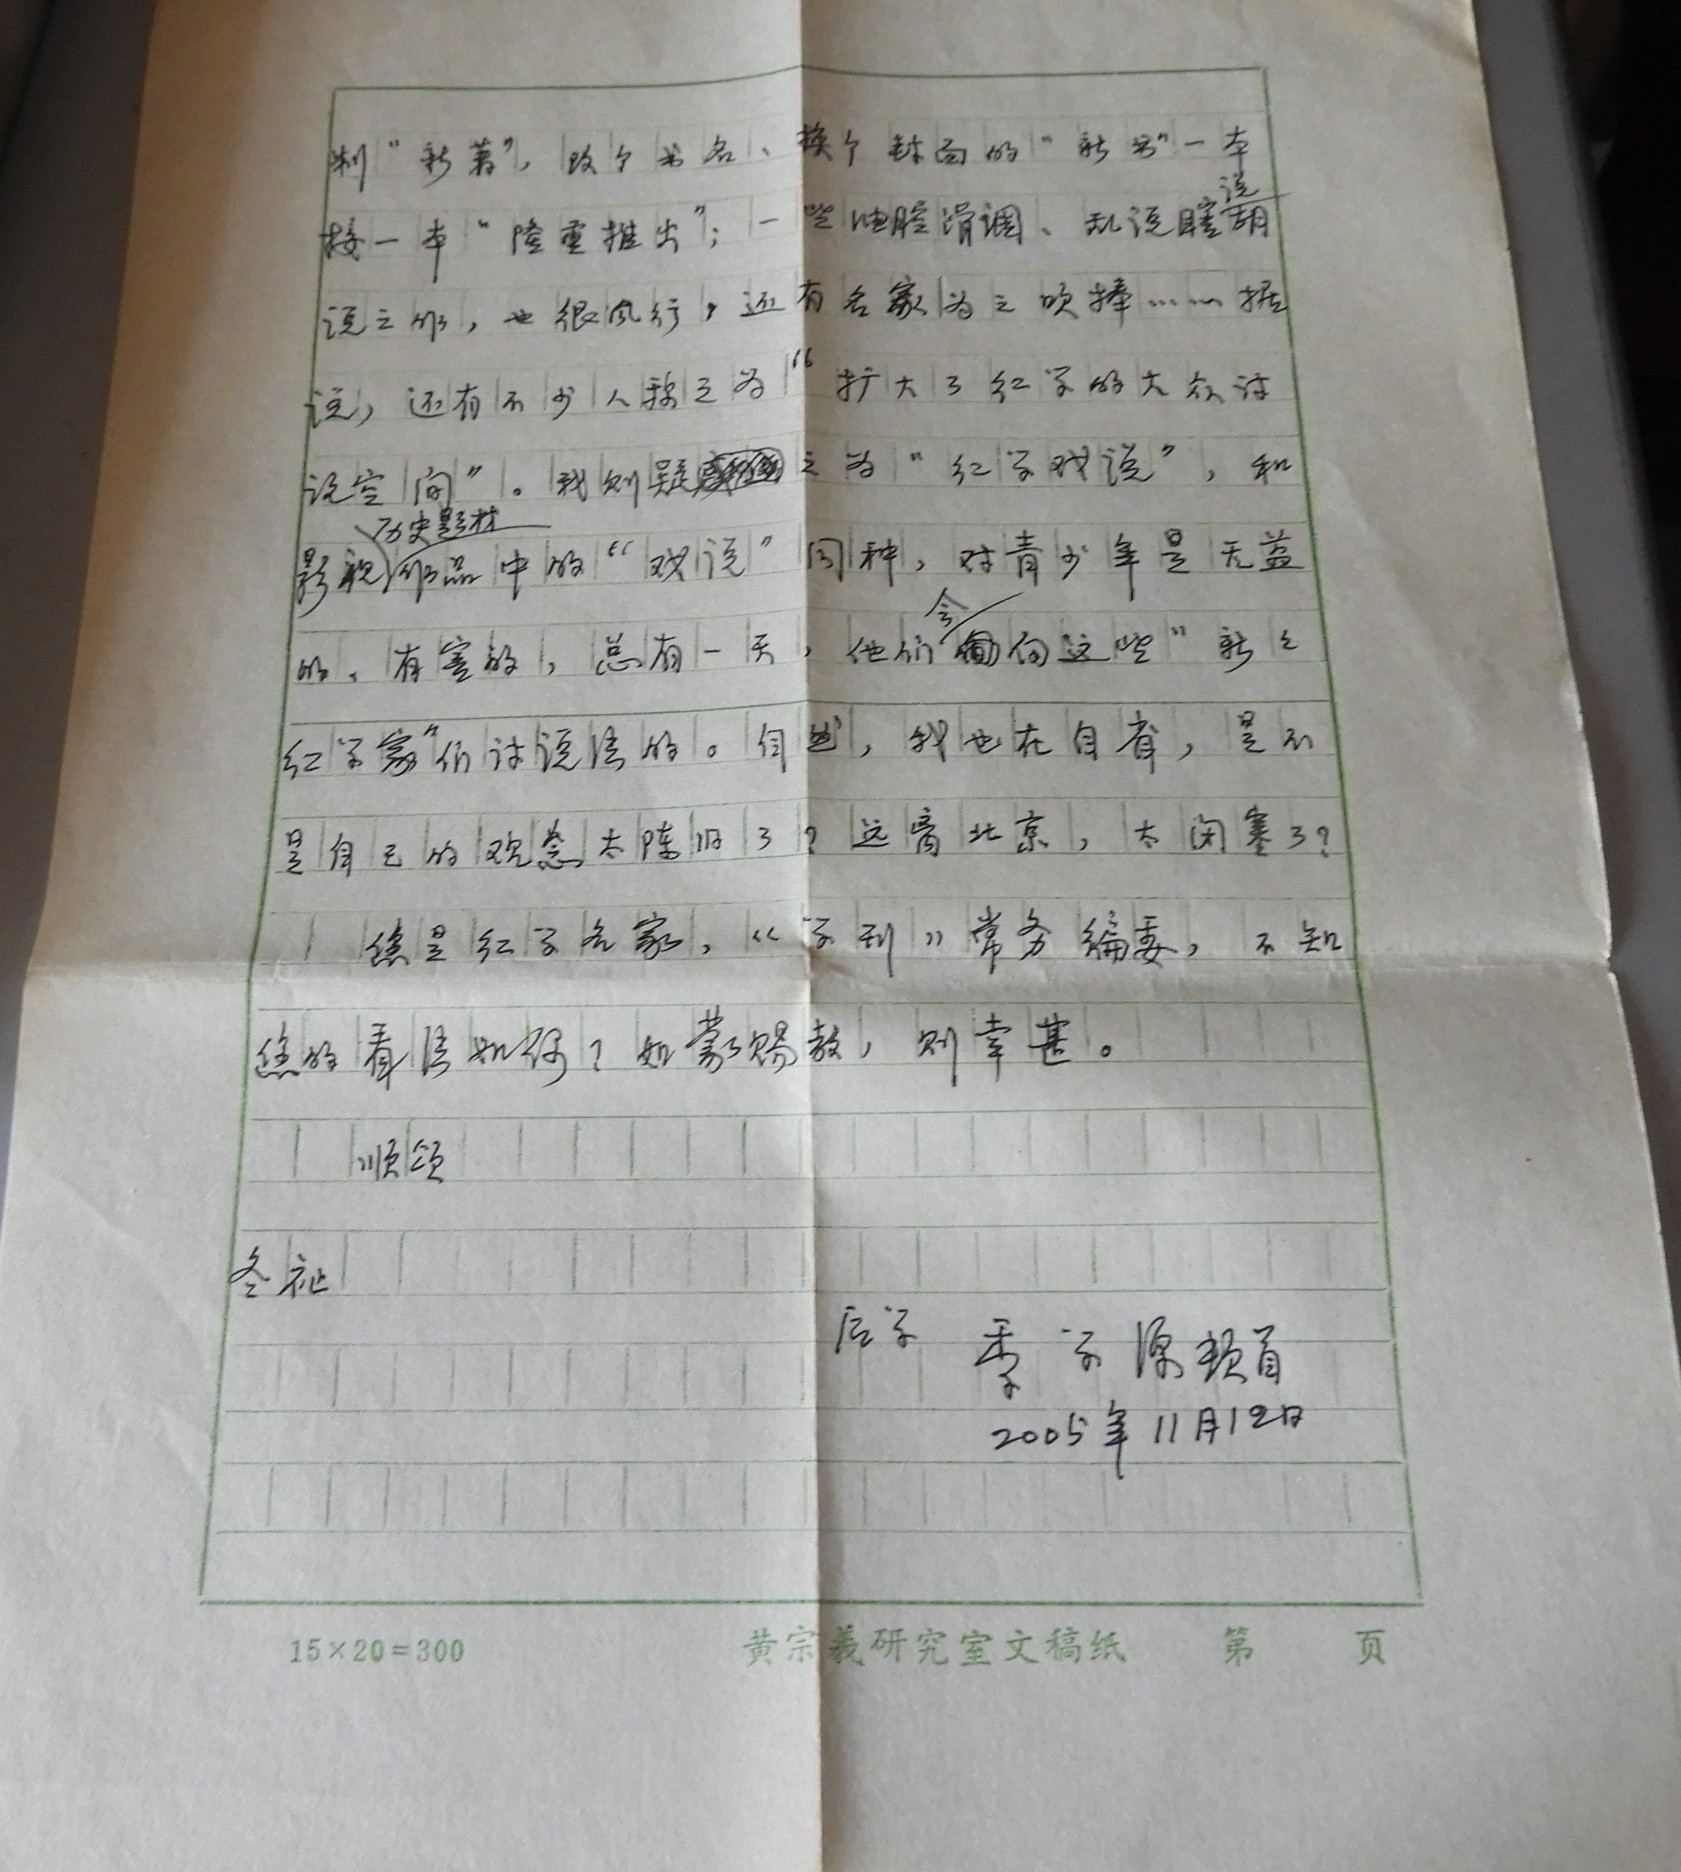 制“新著”，改个书名、换个封面的“新书”一本
接一本“隆重推出”；一些油腔滑调、乱说瞎说胡
说之作，也很风行，还有名家为之吹捧……据
说，还有不少人称之为“扩大了红学的大众讨
论空间”。我则疑之为“红学戏说”，和
影视历史题材作品中的“戏说”同种，对青少年是无益
的、有害的，总有一天，他们会向这些“新之
红学家”们讨说法的。自然，我也在自省，是不
是自己的观念太陈旧了？远离北京，太闭塞了？
您是红学名家，《学刊》常务编委，不知
您的看法如何？如蒙赐教，则幸甚。
顺颂
冬祉
后学 季学源顿首
2005年11月12日
15×20=300 黄宗羲研究室文稿纸 第 页